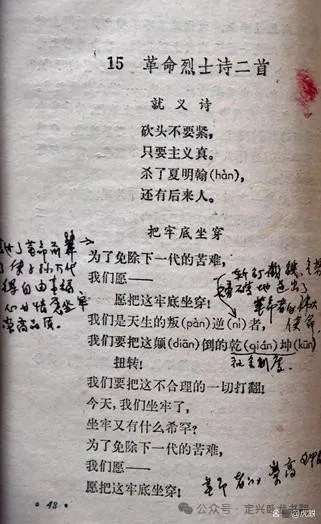 15 革命烈士诗二首
就义诗
砍头不要紧,
只要主义真。
杀了夏明翰(hàn),
还有后来人。
把牢底坐穿
为了免除下一代的苦难,
我们愿——
愿把这牢底坐穿!
我们是天生的叛(pàn)逆(nì)者,
我们要把这颠(diān)倒的乾(qián)坤(kūn)
扭转!
我们要把这不合理的一切打翻!
今天,我们坐牢了,
坐牢又有什么希罕?
为了免除下一代的苦难,
我们愿——
愿把这牢底坐穿!
革命
子孙万代
得自由幸福
心甘情愿坐牢
崇高品质
革命者的伟大
使命
社会制度
崇高
· 48 ·
公众号·定兴卧龙书院